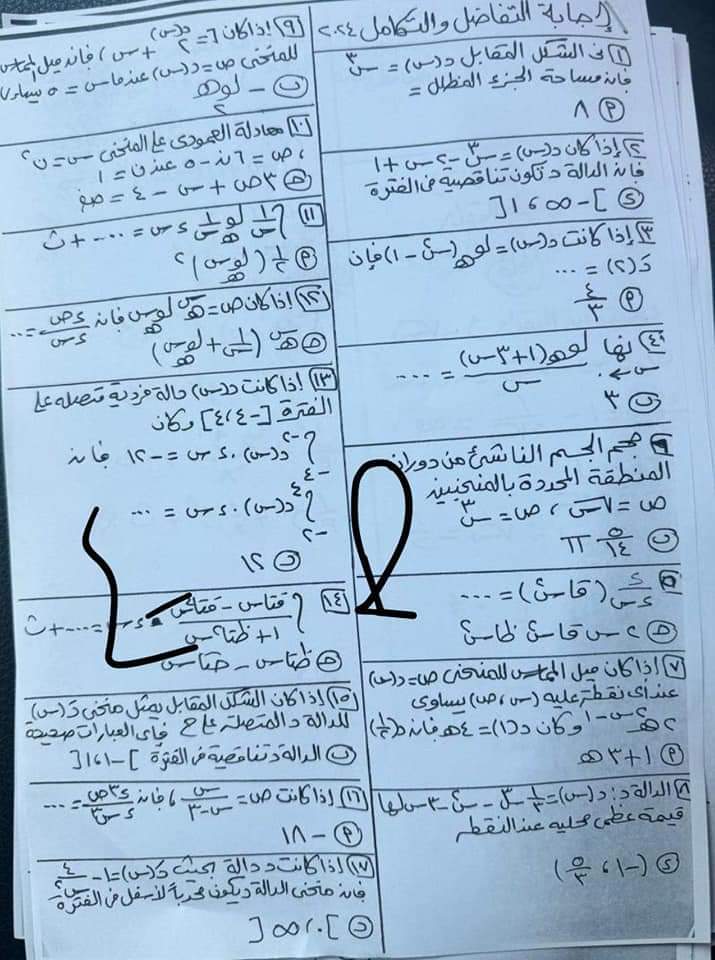 إجابة التفاضل والتكامل ٢٠٢٤
١ فى الشكل المقابل د(س) = س٣
فإن مساحة الجزء المظلل =
٨
٢ إذا كان د(س) = س٣ - ٢س + ١
فإن الدالة د تكون تناقصية فى الفترة
]-∞ ، ١[
٣ إذا كانت د(س) = لو هـ (س٢ - ١) فإن
دَ(٢) = ...
٤/٣
٤ نهـا لو هـ (١ + ٣س) / س = ...
س ← ٠
٣
حجم الجسم الناشئ من دوران
المنطقة المحددة بالمنحنيين
ص = √س ، ص = س٣
٥/١٤ π
ء/ءس (قا س٢) = ...
٢س قا س٢ ظا س٢
٧ إذا كان ميل المماس للمنحنى ص = د(س)
عند أى نقطة عليه (س ، ص) يساوى
وكان د(١) = ٤هـ فإن د(١/٢)
١ + ٣هـ
٨ الدالة د : د(س) = ١/٣ س٣ - س٢ - ٣س لها
قيمة عظمى محلية عند النقطة
(-١ ، ٥/٣)
٩ إذا كان ٦ = ٢ د(س) + س ، فإن ميل المماس
للمنحنى ص = د(س) عند س = ٥ يساوى
- لو هـ ٢
١٠ معادلة العمودى على المنحنى س = ن٢
، ص = ٦ن - ٥ عند ن = ١
٣ص + س - ٤ = صفر
١١ ∫ ١/س لو هـ ١/س ءس = ... + ث
١/٢ (لو هـ س)٢
١٢ إذا كان ص = هـس لو هـ س فإن ءص/ءس = ...
هـس (١/س + لو هـ س)
١٣ إذا كانت د(س) دالة فردية متصلة على
الفترة [-٤ ، ٤] وكان
∫ د(س) . ءس = -١٢ فإن
∫ د(س) . ءس = ...
١٢
١٤ ∫ قتاس - قتا٢س / ١ + ظتا٢س ءس = ... + ث
١٥ إذا كان الشكل المقابل يمثل منحنى دَ(س)
للدالة د المتصلة على ح فأى العبارات صحيحة
الدالة د تناقصية فى الفترة ]-١ ، ١[
١٦ إذا كانت ص = س/س-٣ ، فإن ء٣ص/ءس٣ = ...
-١٨
١٧ إذا كانت د دالة بحيث دَ(س) = ١ - ٤/س٢
فإن منحنى الدالة د يكون محدباً لأسفل فى الفترة
]٠ ، ∞[